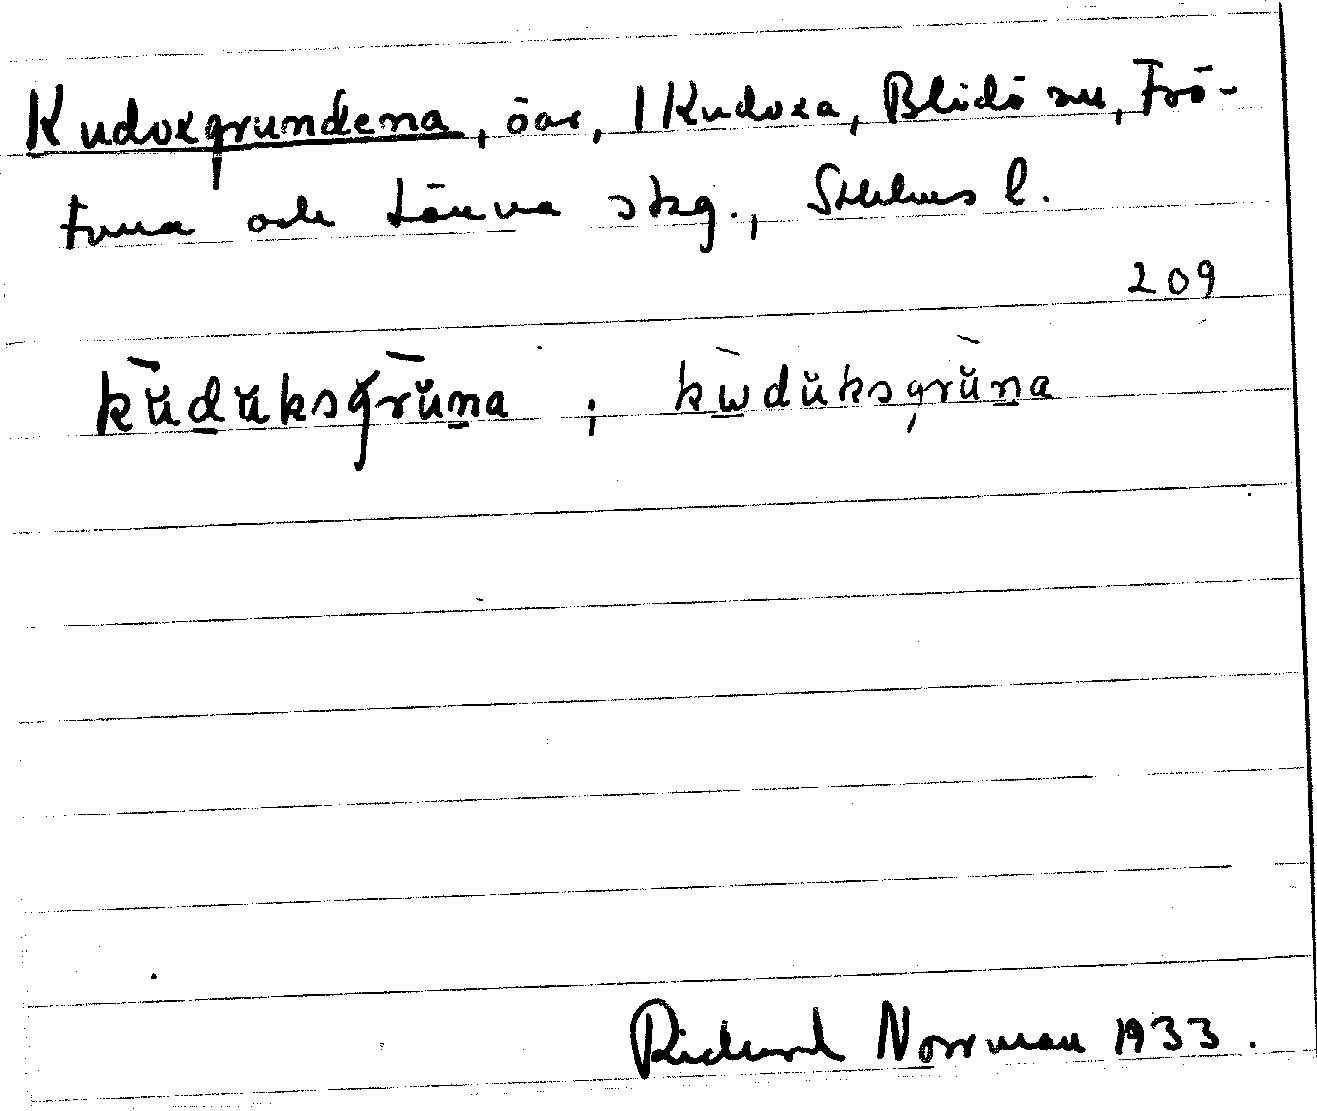 Kudoxgrundena, öar, 1 Kudoxa, Blidö sn, Frö-
tuna och Länna skg., Sthlms l.
209
kŭdŭksgrŭna ; kŭdŭksgrŭna
Richard Norrman 1933.